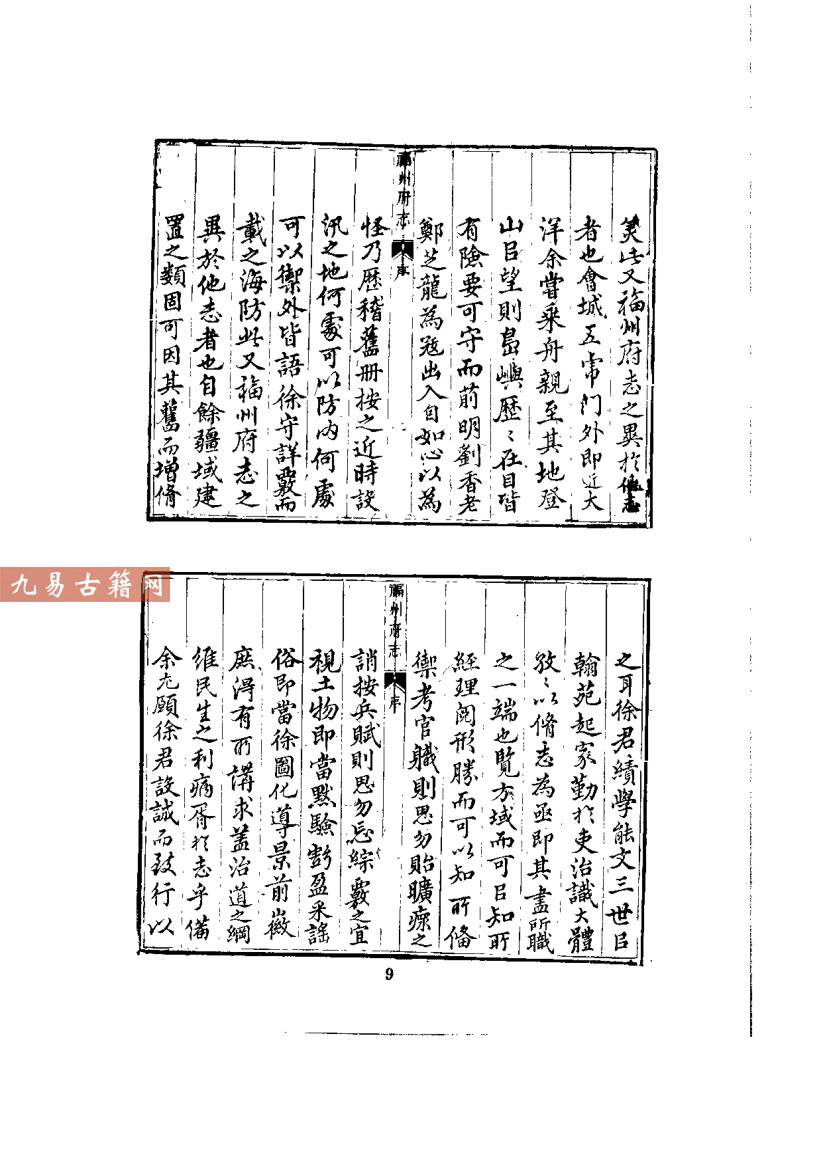 美此又福州府志之異於他志
者也會城五帍門外即近大
洋余嘗乘舟親至其地登
山㠯望則島嶼歷〻在目皆
有險要可守而前明劉香老
鄭芝龍為寇出入自如心以為
福州府志 序
怪乃歷稽舊冊按之近時設
汛之地何處可以防內何處
可以禦外皆語徐守詳覈而
載之海防此又福州府志之
異於他志者也自餘疆域建
置之類固可因其舊而增脩
九易古籍网
之耳徐君績學能文三世㠯
翰苑起家勤於吏治識大體
孜〻以脩志為亟即其盡所職
之一端也覽方域而可㠯知所
經理閱形勝而可以知所備
禦考官職則思勿貽曠瘝之
福州府志 序
誚按兵賦則思勿忘綜覈之宜
視土物即當默驗虧盈采謠
俗即當徐圖化導景前徽
庶得有所講求蓋治道之綱
維民生之利病胥於志乎備
余尤願徐君設誠而致行以
9